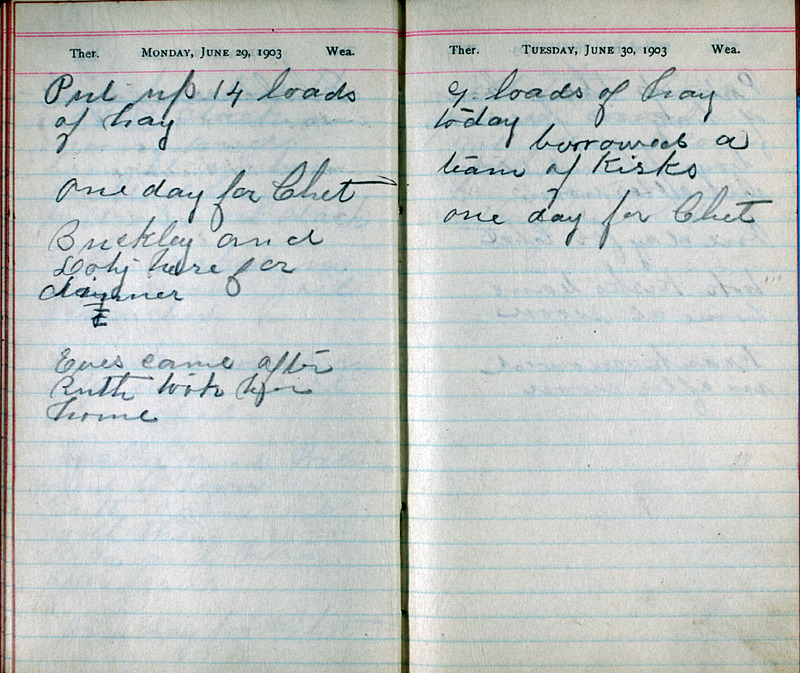 Ther. MONDAY, JUNE 29, 1903 Wea.
Put up 14 loads
of hay
One day for Chet
Buckley and
here for
dinner
Eves came after
Ruth took her
home
Ther. TUESDAY, JUNE 30, 1903 Wea.
9 loads of hay
today
borrowed a
team of Kisks
one day for Chet